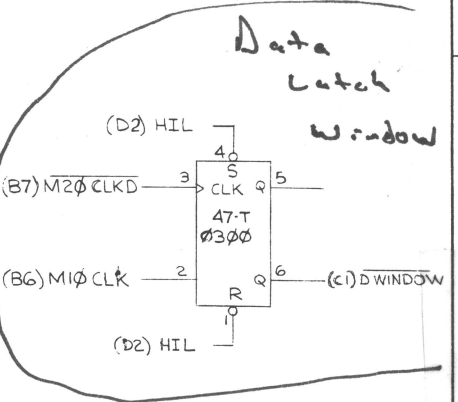 Data
Latch
Window
(D2) HIL
4
S
(B7) M2Ø CLKD
3
CLK
Q
5
47-T
Ø3ØØ
(B6) M1Ø CLK
2
Q
6
(C1) D WINDOW
R
1
(D2) HIL